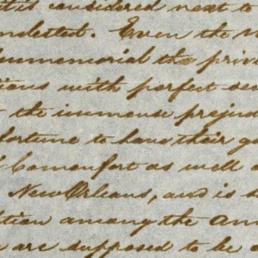 is considered next to
Even the
immemorial the priv
tions with perfect
the immense prejud
fortune to have their go
as well a
New Orleans, and is s
tion among the an
are supposed to be